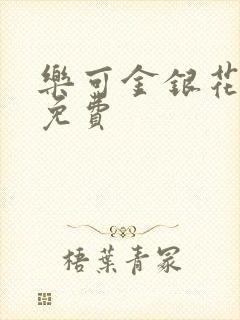 樂可金銀花
免費
梧葉青冢